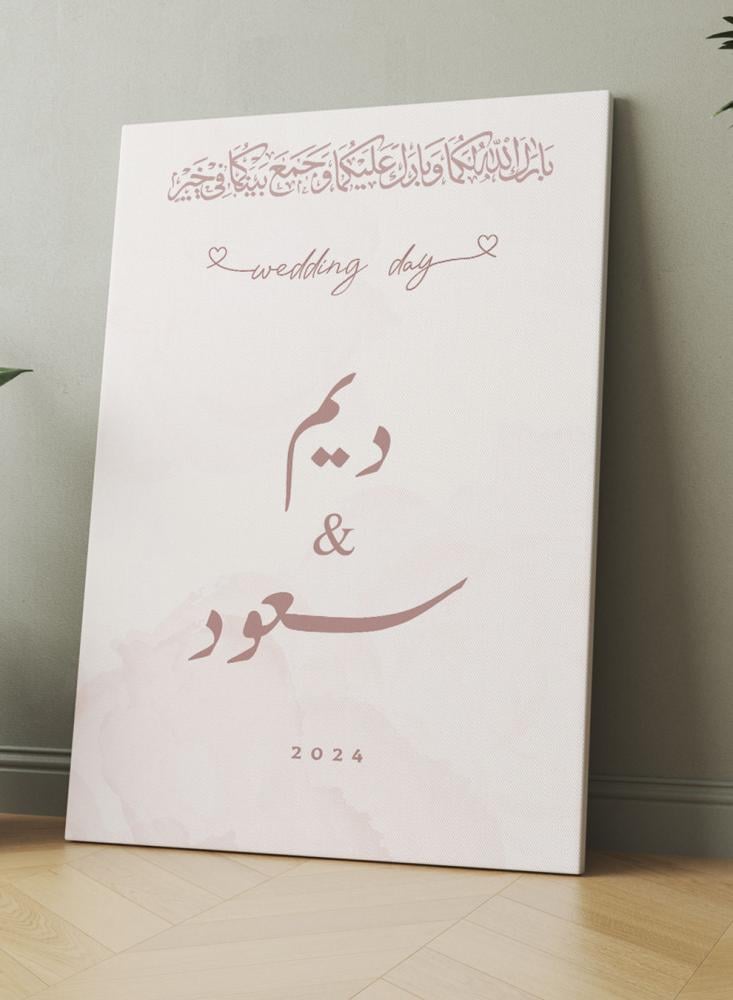 بَارَكَ اللَّهُ لَكُمَا وَبَارَكَ عَلَيْكُمَا وَجَمَعَ بَيْنَكُمَا فِي خَيْرٍ
wedding day
ديم
&
سعود
2024